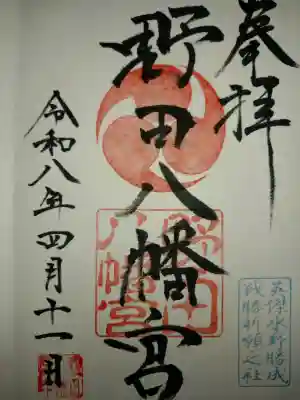 奉拝
野田八幡宮
令和八年四月十一日
野田
八幡宮
英傑水野勝成
戦勝祈願之社